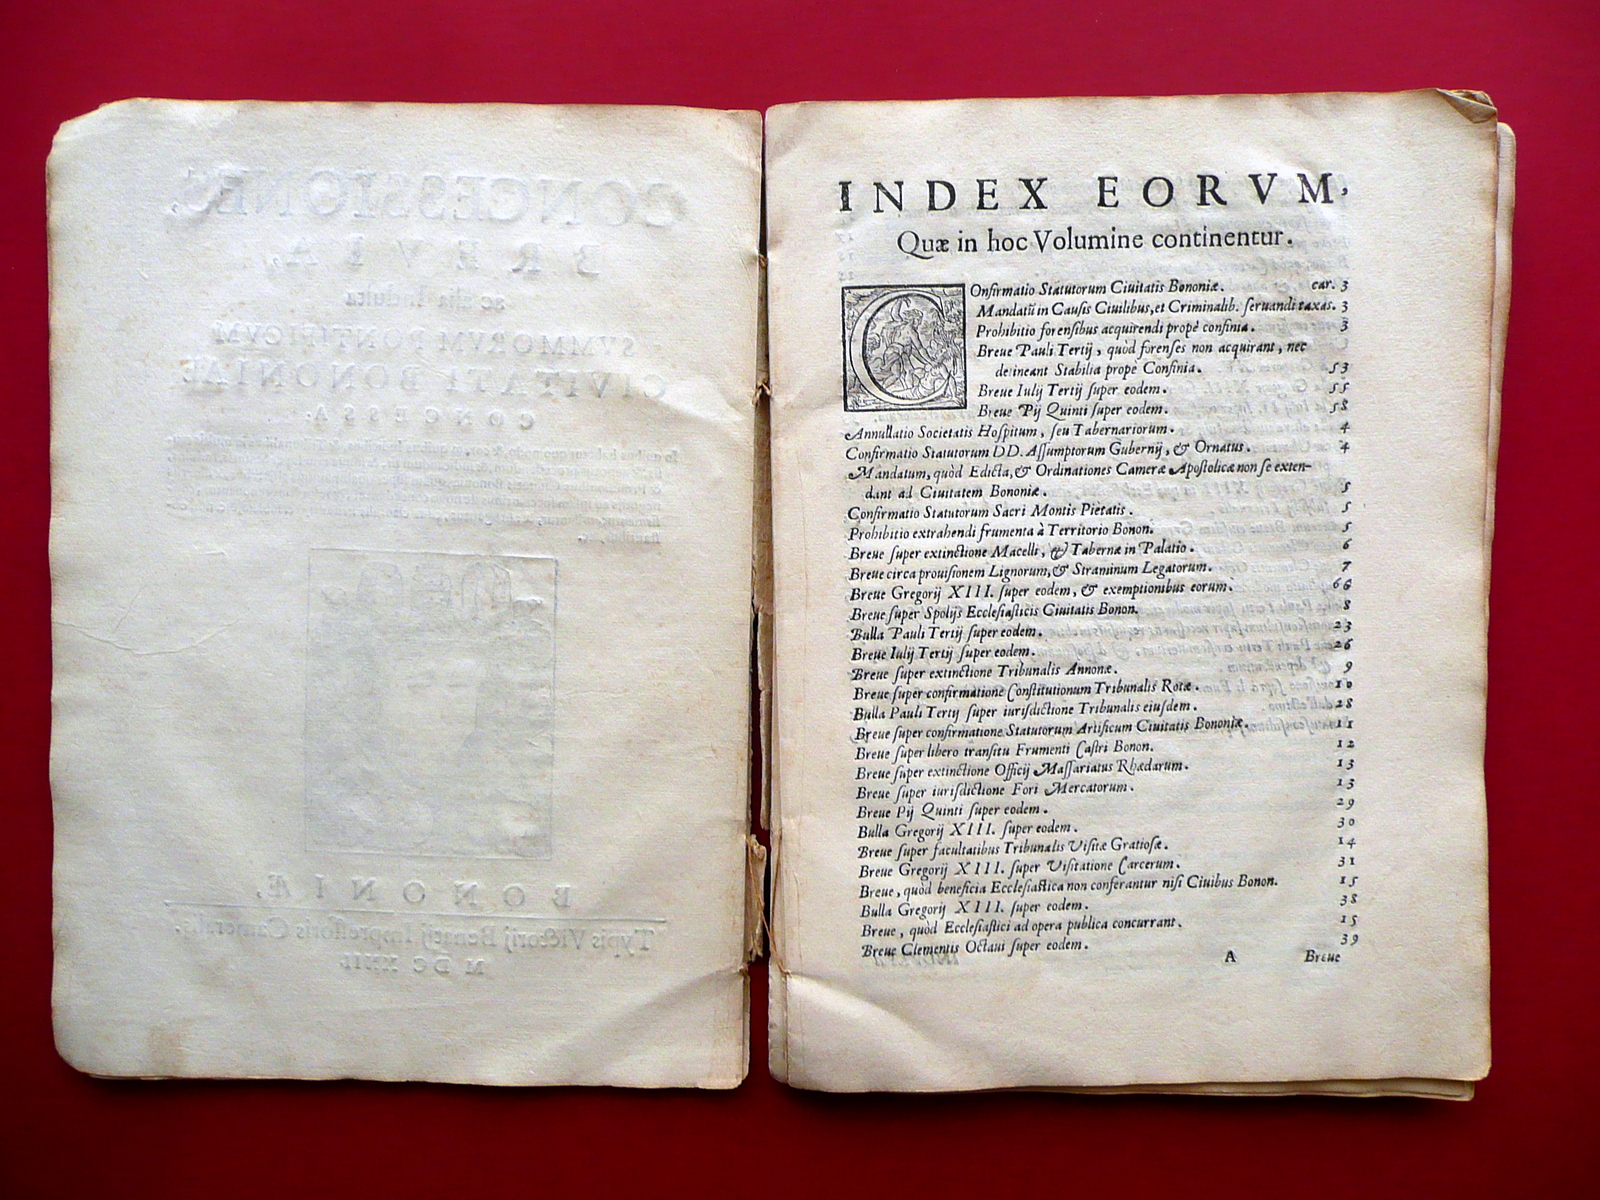 CONCESSIONES,
BREVIA,
ac alia Indulta
SVMMORVM PONTIFICVM
CIVITATI BONONIAE
CONCESSA.
BONONIÆ,
Typis Victorij Benatij Impressoris Cameralis,
INDEX EORVM,
Quæ in hoc Volumine continentur.
Confirmatio Statutorum Ciuitatis Bononiæ. car. 3
Mandatũ in Causis Ciuilibus, et Criminalib. seruandi taxas. 3
Prohibitio forensibus acquirendi propè confinia. 3
Breue Pauli Tertij, quòd forenses non acquirant, nec
detineant Stabilia prope Confinia. 53
Breue Iulij Tertij super eodem. 55
Breue Pij Quinti super eodem. 58
Annullatio Societatis Hospitum, seu Tabernariorum. 4
Confirmatio Statutorum DD. Assumptorum Gubernij, & Ornatus. 4
Mandatum, quòd Edicta, & Ordinationes Cameræ Apostolicæ non se exten-
dant ad Ciuitatem Bononiæ. 5
Confirmatio Statutorum Sacri Montis Pietatis. 5
Prohibitio extrahendi frumenta à Territorio Bonon. 5
Breue super extinctione Macelli, & Tabernæ in Palatio. 6
Breue circa prouisionem Lignorum, & Straminum Legatorum. 7
Breue Gregorij XIII. super eodem, & exemptionibus eorum. 66
Breue super Spolijs Ecclesiasticis Ciuitatis Bonon. 8
Bulla Pauli Tertij super eodem. 23
Breue Iulij Tertij super eodem. 26
Breue super extinctione Tribunalis Annonæ. 9
Breue super confirmatione Constitutionum Tribunalis Rotæ. 10
Bulla Pauli Tertij super iurisdictione Tribunalis eiusdem. 28
Breue super confirmatione Statutorum Artificum Ciuitatis Bononiæ. 11
Breue super libero transitu Frumenti Castri Bonon. 12
Breue super extinctione Officij Massariatus Rhædarum. 13
Breue super iurisdictione Fori Mercatorum. 13
Breue Pij Quinti super eodem. 29
Bulla Gregorij XIII. super eodem. 30
Breue super facultatibus Tribunalis Visitæ Gratiosæ. 14
Breue Gregorij XIII. super Visitatione Carcerum. 31
Breue, quòd beneficia Ecclesiastica non conferantur nisi Ciuibus Bonon. 15
Bulla Gregorij XIII. super eodem. 38
Breue, quòd Ecclesiastici ad opera publica concurrant. 15
Breue Clementis Octaui super eodem. 39
A Breue